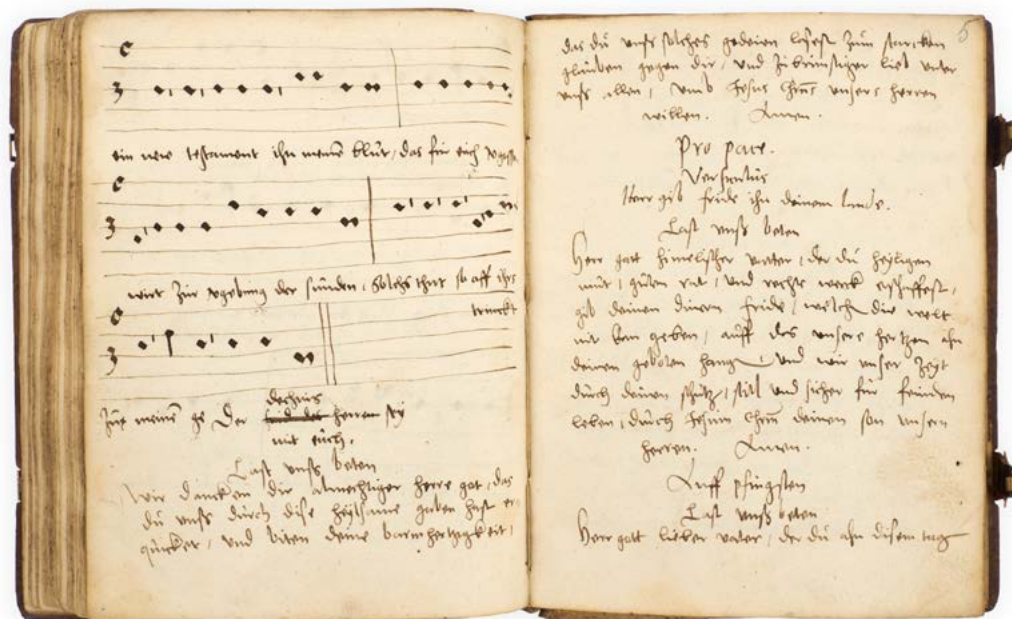 ein new testament ihn meinem blut, das für eich vgossen
wirt zür vgebung der sünden, solchs thut so offt ihrs
trinckt
zür meiner ge Der
herren sey
mit eüch.
Last unß beten
Wir dancken dir almechtiger herre got, das
du unß durch dise heylsame gaben hast er
quicket, und biten deine barmhertzigkeit,
5
das dü unß solches gedeien lasest zum starcken
glauben gegen dir, und zu brünstiger lieb unter
unß allen, umb Jesus Chrus unsers herren
willen. Amen.
Pro pace.
Versiculus
Herr gib fride ihn deinem lande.
Last unß beten
Herr gott himelischer vater, der dü heyligen
mut, guten rat, und rechte werck schaffest,
gib deinen dinern fride, welch die welt
nit kan geben, auff das unsere hertzen ahn
deinen geboten hangen, und wir unser zeyt
durch deinen schutz, still und sicher für feinden
leben, durch Jesum Chrm deinen son unsern
herren. Amen.
Auff pfingsten
Last unß beten
Herr gott lieber vater, der dü ahn disem tag